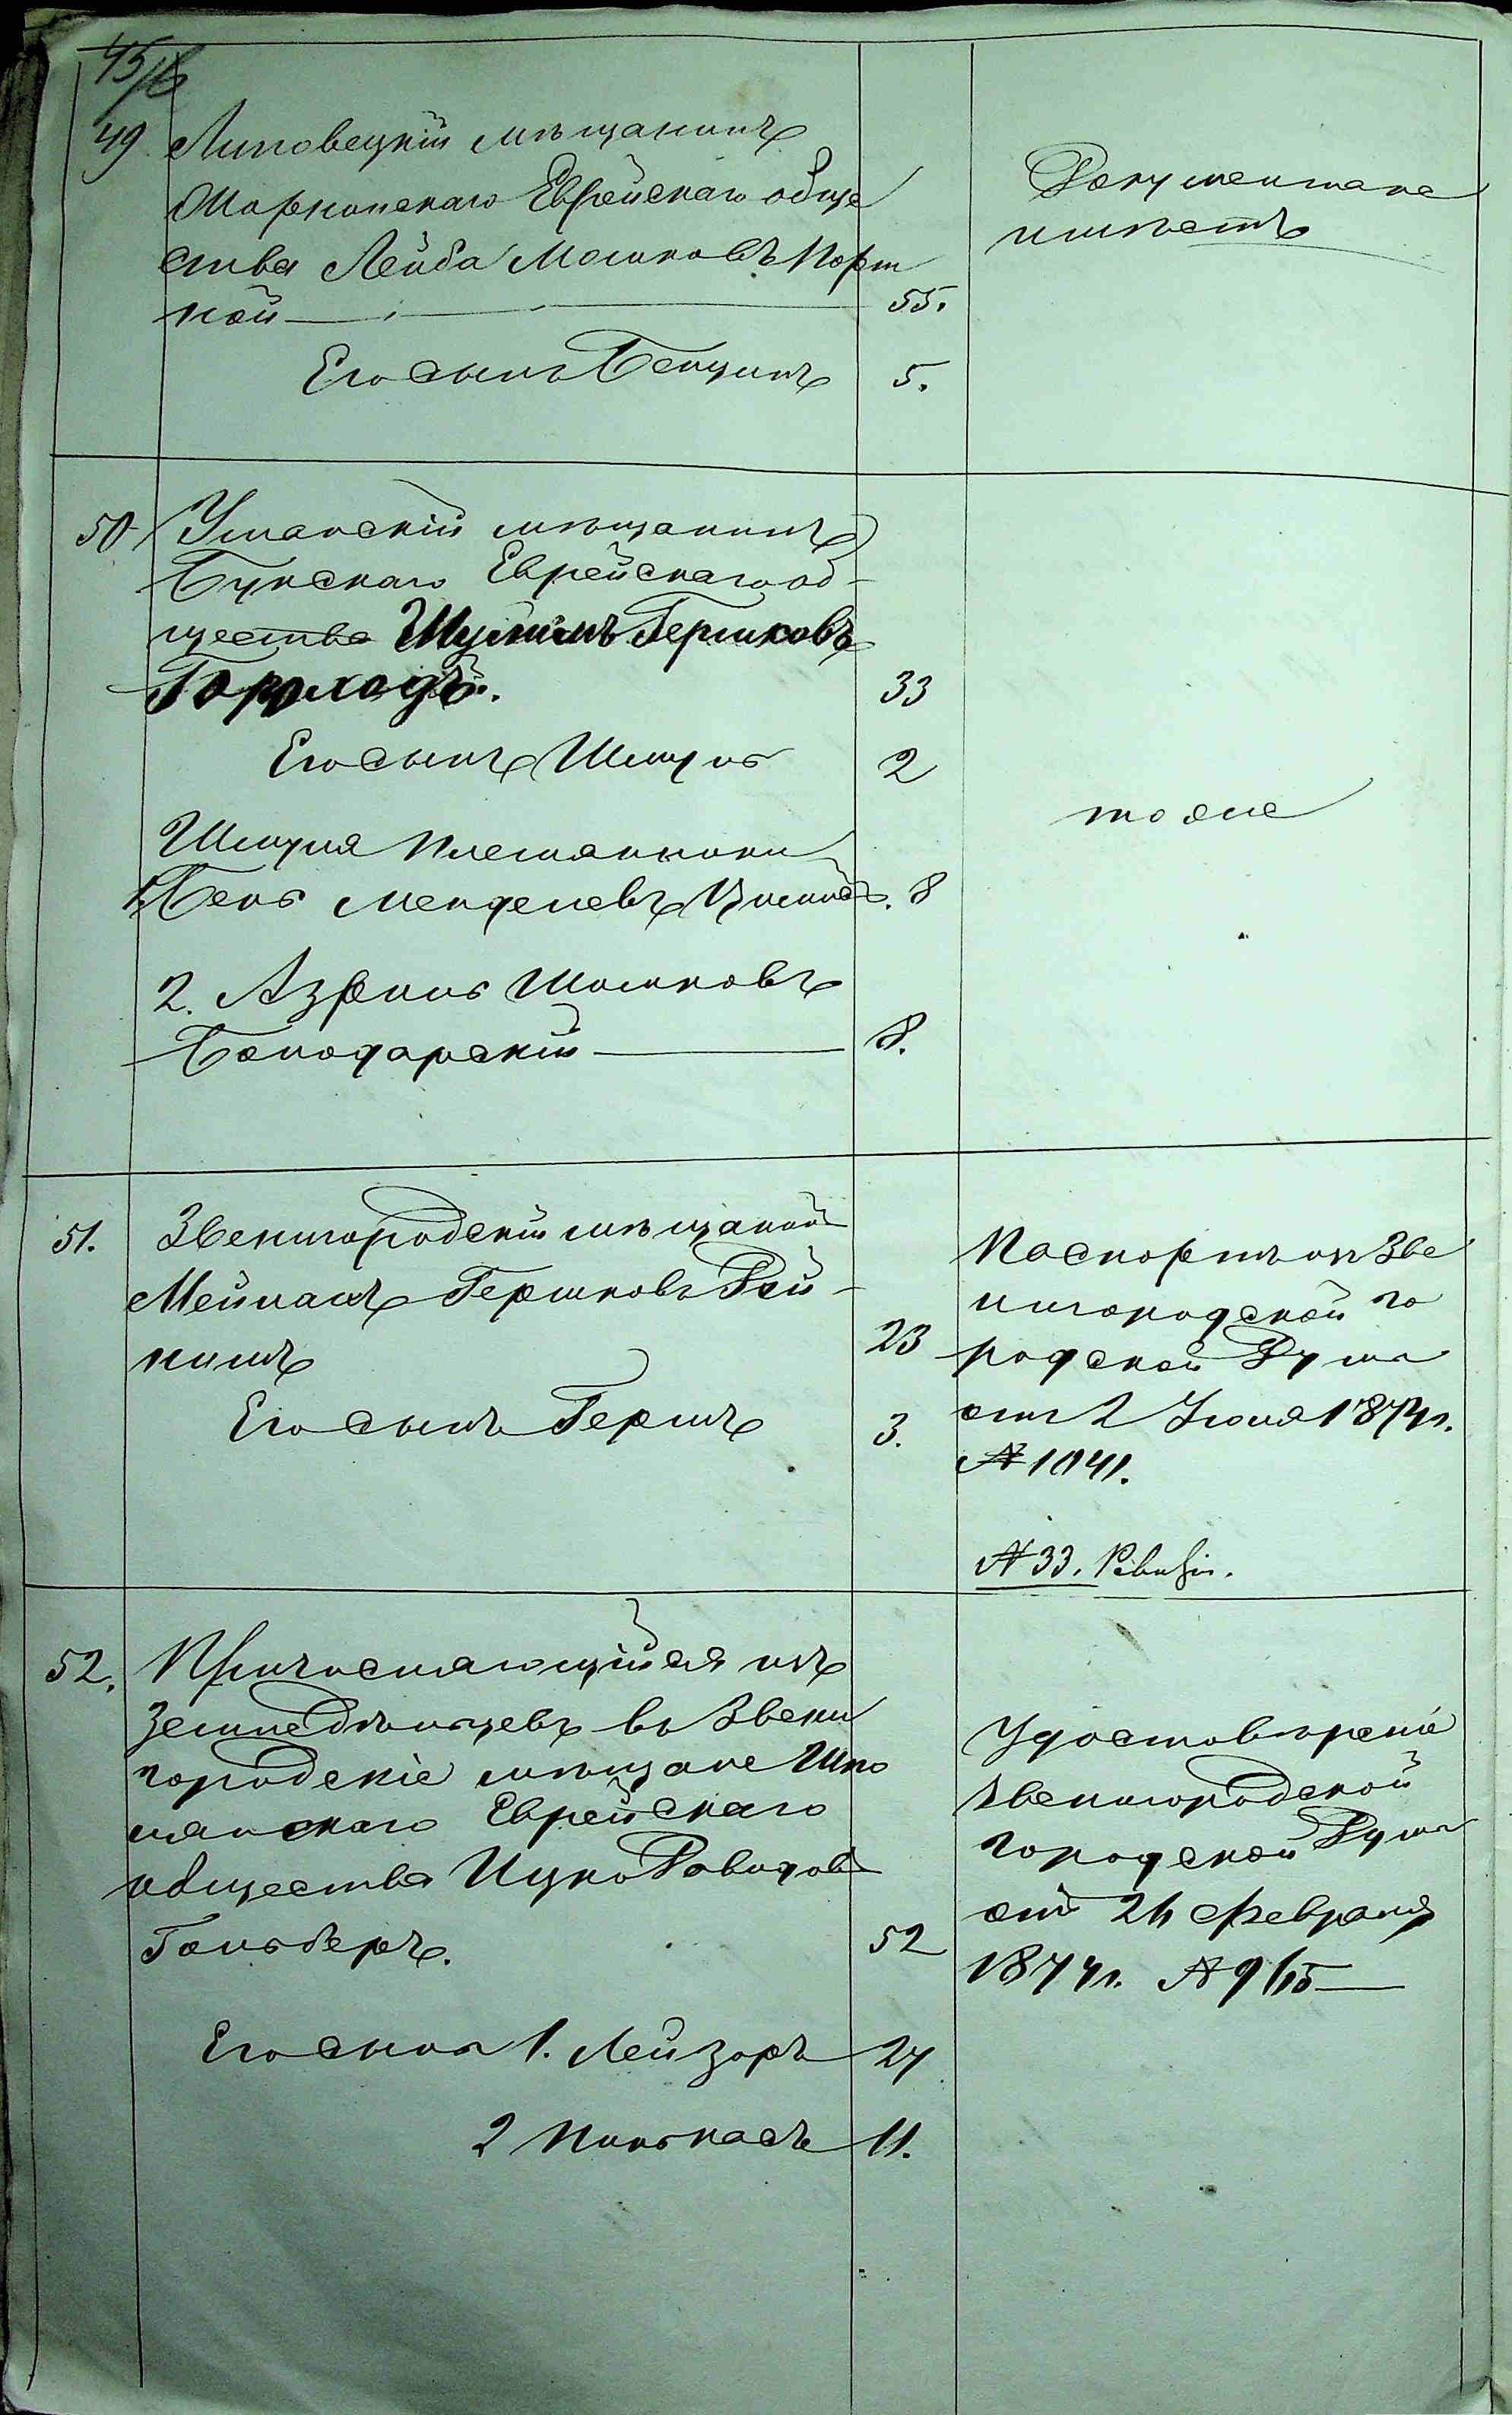 49 Липовецкій мѣщанинъ
Еврейскаго обще
ства Лейба Мошковъ Порт
ной 55.
Его сынъ Бенцинъ 5.
Документа не
имѣетъ
50 Уманскій мѣщанинъ
Букскаго Еврейскаго об-
щества Гершковъ
33
Его сынъ Шмуль 2
Шмуля племянники
1. Менделевъ 8
2. Азриль Шмиковъ
Бонодарскій 8.
тоже
51. Звенигородскій мѣщанинъ
Мейнахъ Гершковъ Рей-
нишъ 23
Его сынъ Гершъ 3.
Паспортъ изъ Зве
нигородской го
родской Думы
отъ 2 Іюля 1874 г.
№ 1041.
№ 33. Ревизіи.
52. Причисляющійся изъ
земледѣльцевъ въ Звени
городскіе мѣщане Шпо
лянскаго Еврейскаго
общества Ицко Давидовъ
Гольберъ. 52
Его сыновья 1. Лейзоръ 24
2 Пинькасъ 11.
Удостовѣреніе
Звенигородской
городской Думы
отъ 26 Февраля
1874 г. №